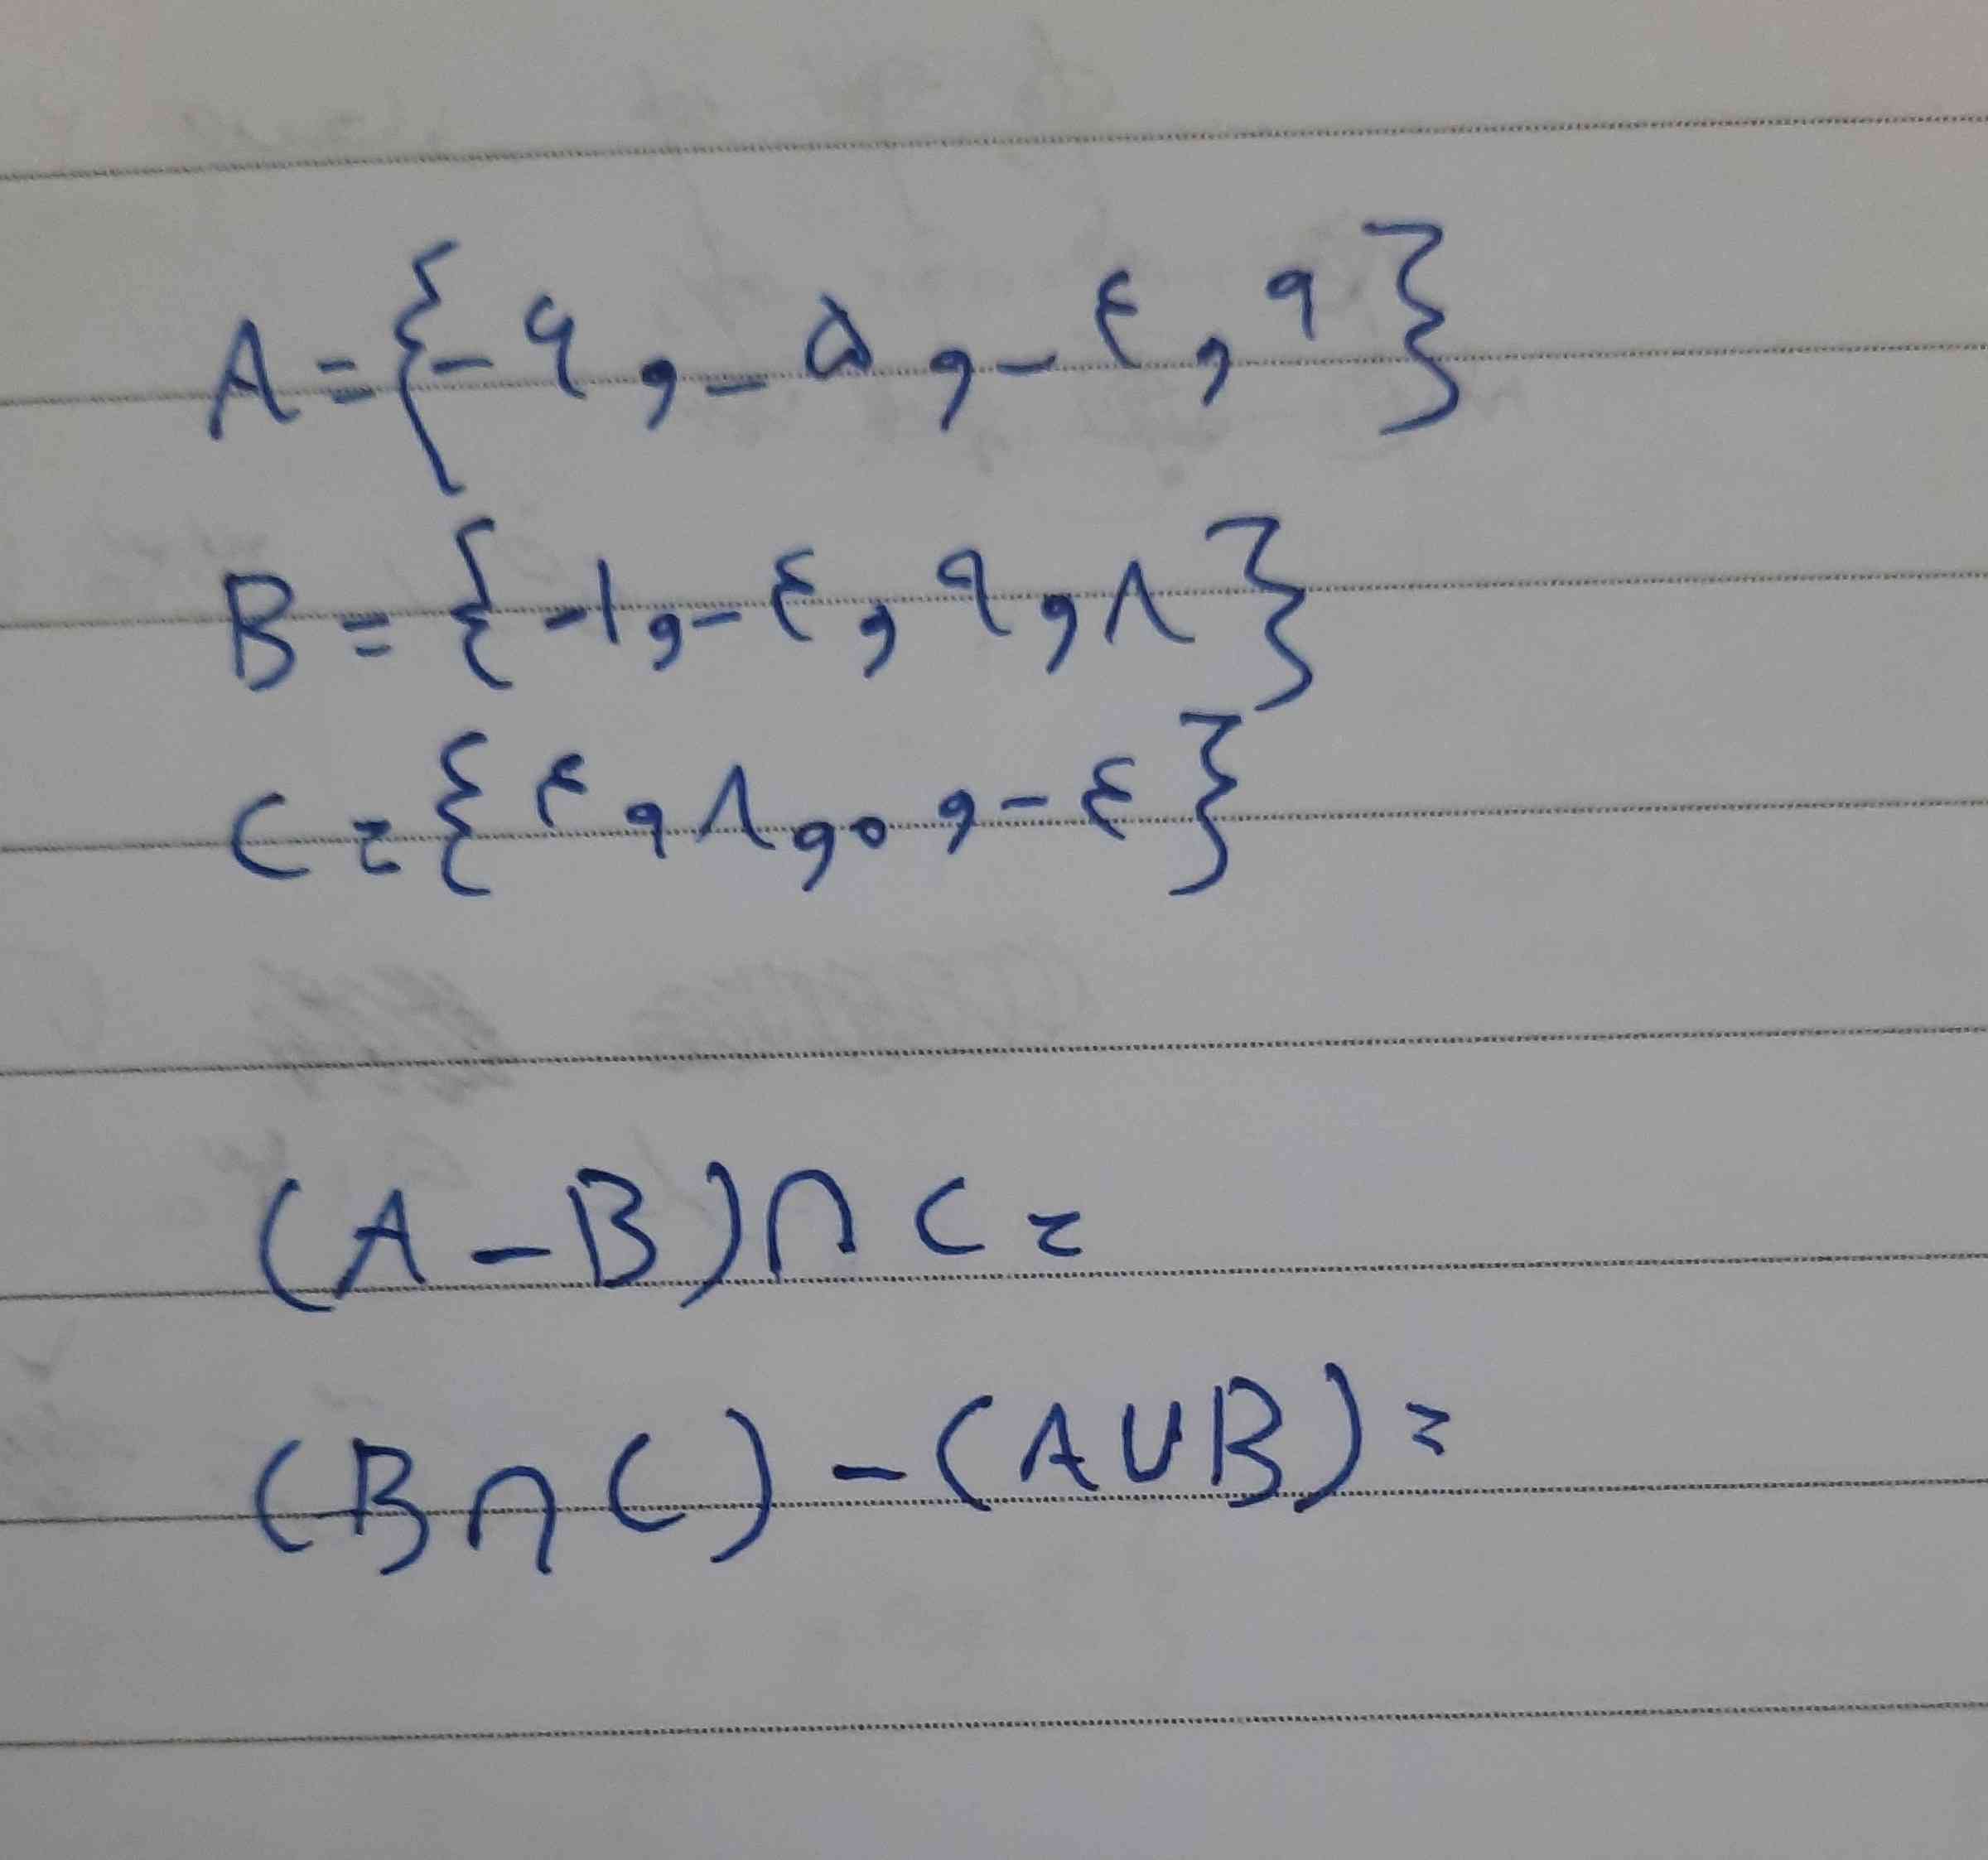 A = {-۹ , -۵ , -۴ , ۹}
B = {-۱ , -۴ , ۹ , ۸}
C = {۴ , ۸ , ۰ , -۴}
(A - B) ∩ C =
(B ∩ C) - (A ∪ B) =